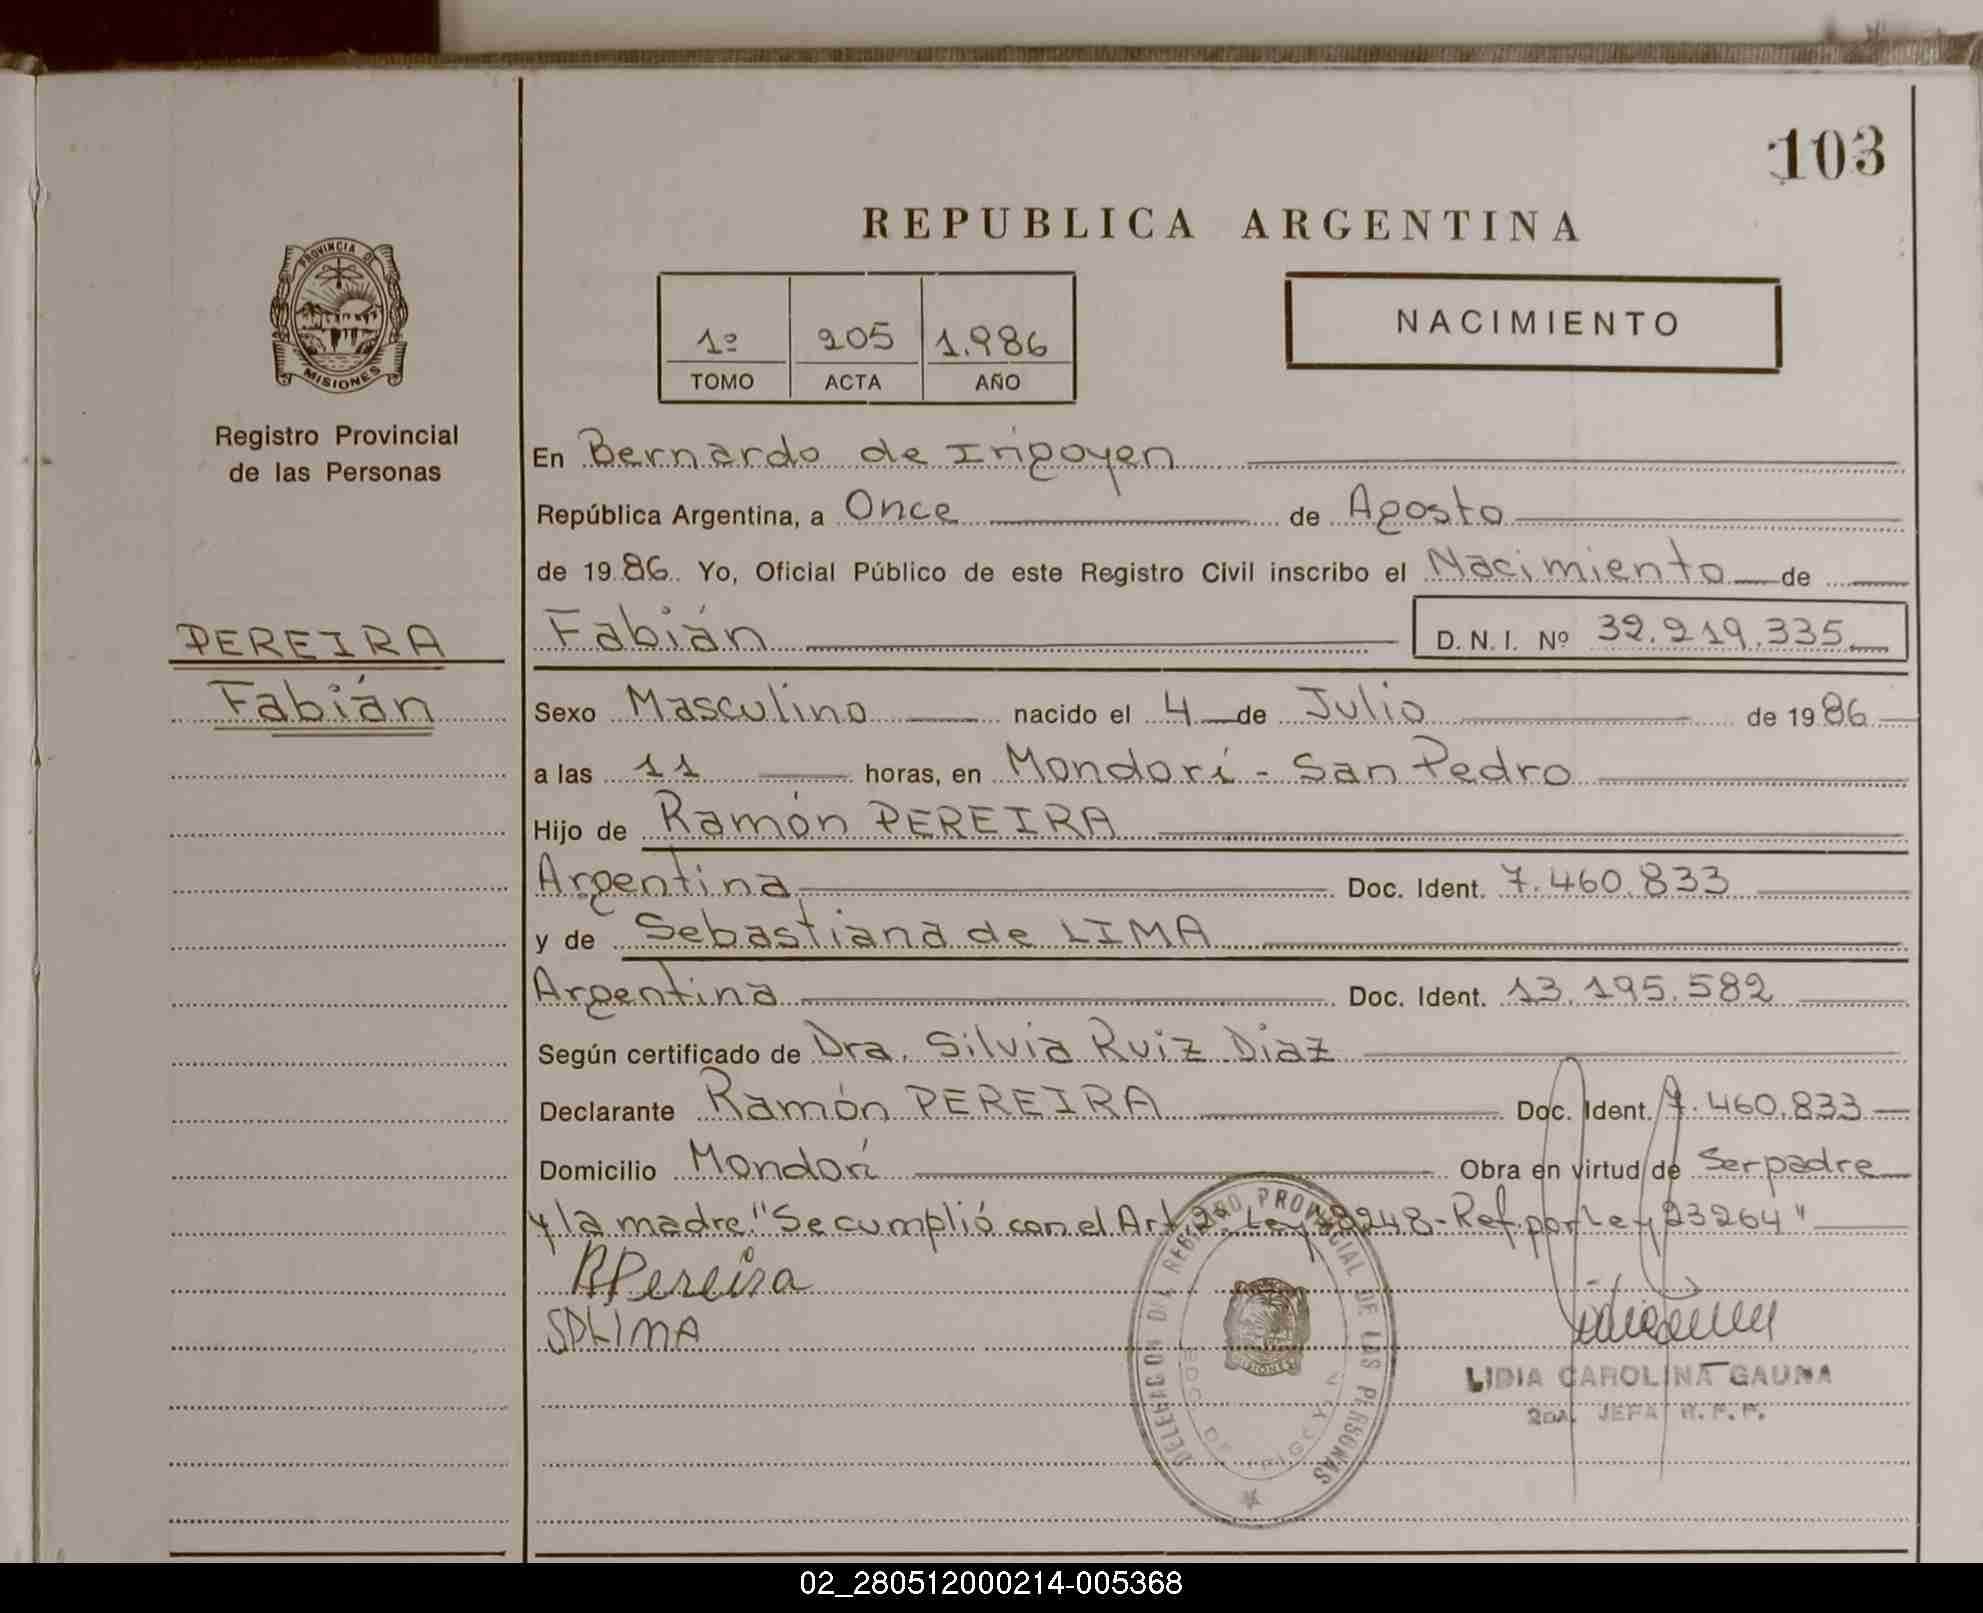 103
REPUBLICA ARGENTINA
PROVINCIA DE
MISIONES
1º 205 1.986
TOMO ACTA AÑO
NACIMIENTO
Registro Provincial
de las Personas
PEREIRA
Fabián
En Bernardo de Irigoyen
República Argentina, a Once de Agosto
de 1986. Yo, Oficial Público de este Registro Civil inscribo el Nacimiento de
Fabián D. N. I. Nº 32.219.335
Sexo Masculino nacido el 4 de Julio de 1986
a las 11 horas, en Mondorí - San Pedro
Hijo de Ramón PEREIRA
Argentina Doc. Ident. 7.460.833
y de Sebastiana de LIMA
Argentina Doc. Ident. 13.195.582
Según certificado de Dra. Silvia Ruiz Diaz
Declarante Ramón PEREIRA Doc. Ident. 7.460.833
Domicilio Mondorí Obra en virtud de Ser padre
y la madre. "Se cumplió con el Art. 2º Ley 18248-Ref. por Ley 23264"
RPereira
SDLIMA
DELEGACION DEL REGISTRO PROVINCIAL DE LAS PERSONAS
BDO. DE IRIGOYEN
MISIONES
LIDIA CAROLINA GAUNA
2DA. JEFA R. P. P.
02_280512000214-005368